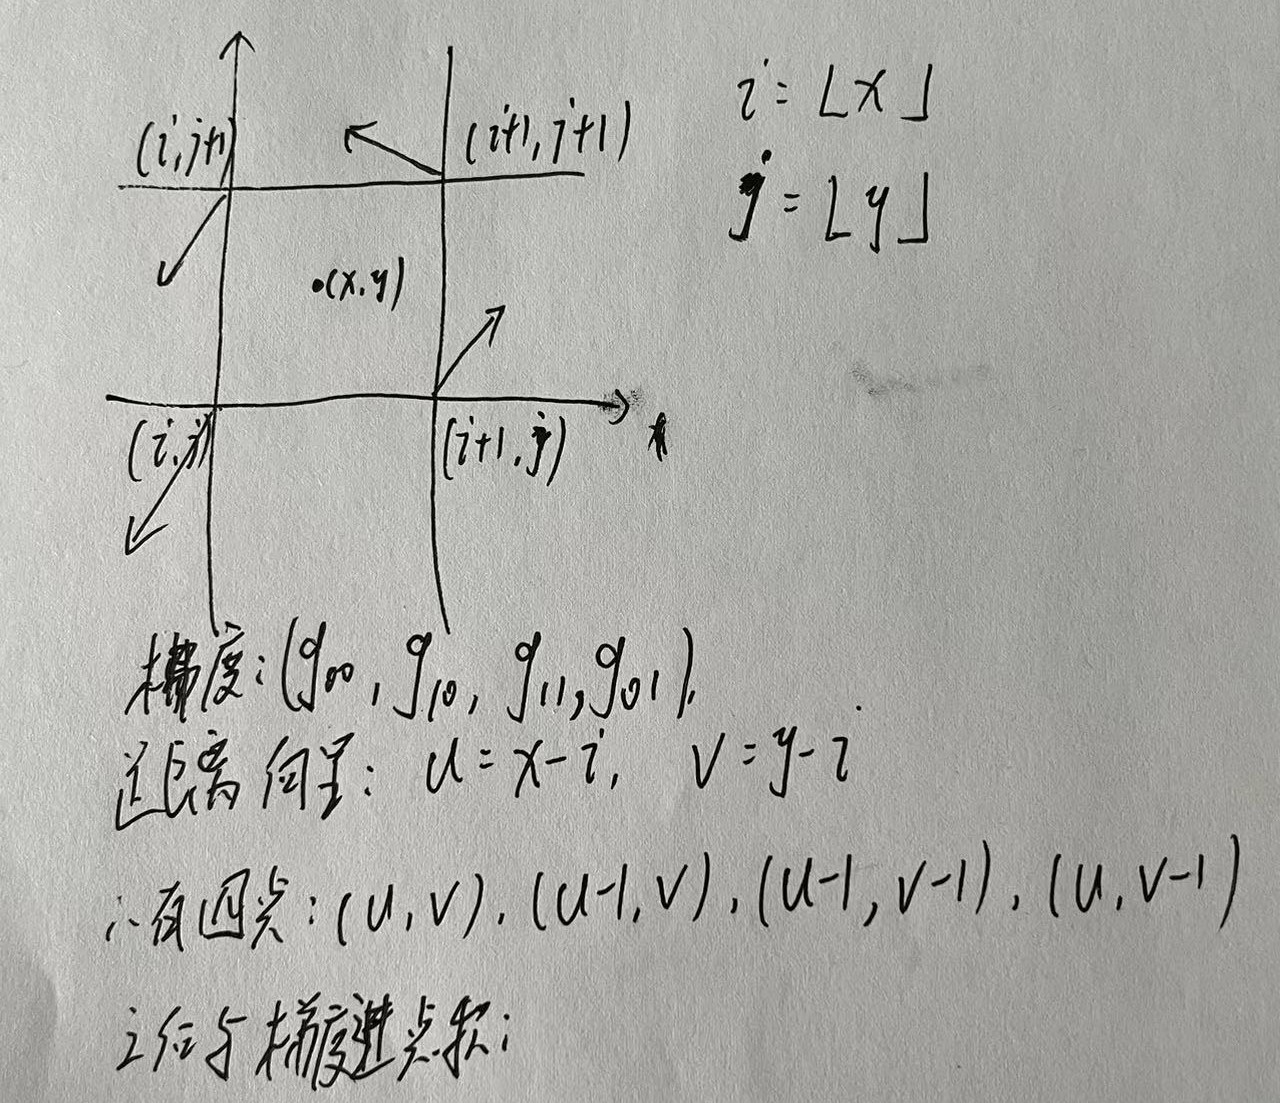 (i,j+1) (i+1,j+1) i=⌊x⌋
j=⌊y⌋
(x,y)
(i,j) (i+1,j)
梯度:(g₀₀,g₁₀,g₁₁,g₀₁).
距离向量:u=x-i, v=y-i
∴有四点:(u,v).(u-1,v).(u-1,v-1).(u,v-1)
与梯度进点积: